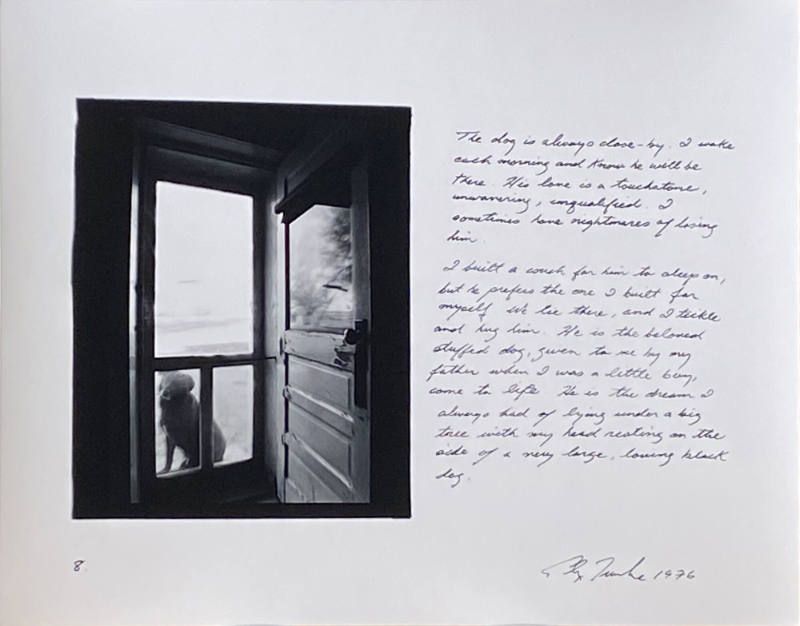 The dog is always close-by. I wake
each morning and know he will be
there. His love is a touchstone,
unwavering, unqualified. I
sometimes have nightmares of losing
him.
I built a couch for him to sleep on,
but he prefers the one I built for
myself. We lie there, and I tickle
and hug him. He is the beloved
stuffed dog, given to me by my
father when I was a little boy,
come to life. He is the dream I
always had of lying under a big
tree with my head resting on the
side of a very large, loving black
dog.
8.
1976